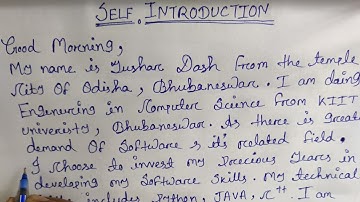 SELF INTRODUCTION
Good Morning,
My name is Tushar Dash From the temple
City Of Odisha, Bhubaneswar. I am doing
Engeneering in Computer Science From KIIT
university, Bhubaneswar. As there is great
demand Of Software & its related field.
I choose to invest my Precious Years in
developing my Software Skills. My technical
includes Python, JAVA, C++. I am